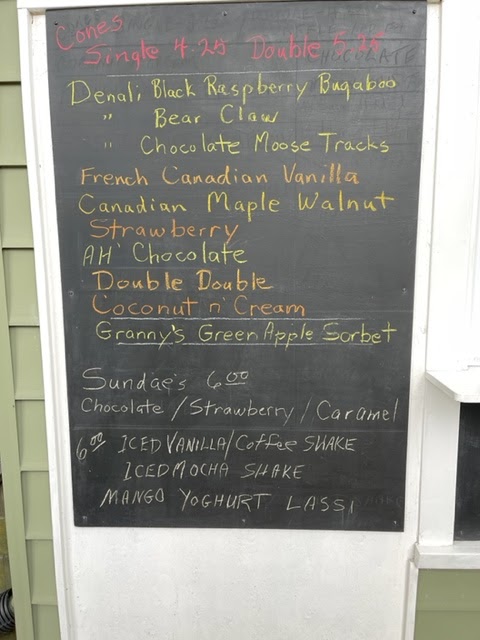 Cones
Single 4.25 Double 5.25
Denali Black Raspberry Bugaboo
" Bear Claw
" Chocolate Moose Tracks
French Canadian Vanilla
Canadian Maple Walnut
Strawberry
AH' Chocolate
Double Double
Coconut n' Cream
Granny's Green Apple Sorbet
Sundae's 6.00
Chocolate / Strawberry / Caramel
6.00 ICED VANILLA/Coffee SHAKE
ICED MOCHA SHAKE
MANGO YOGHURT LASSI